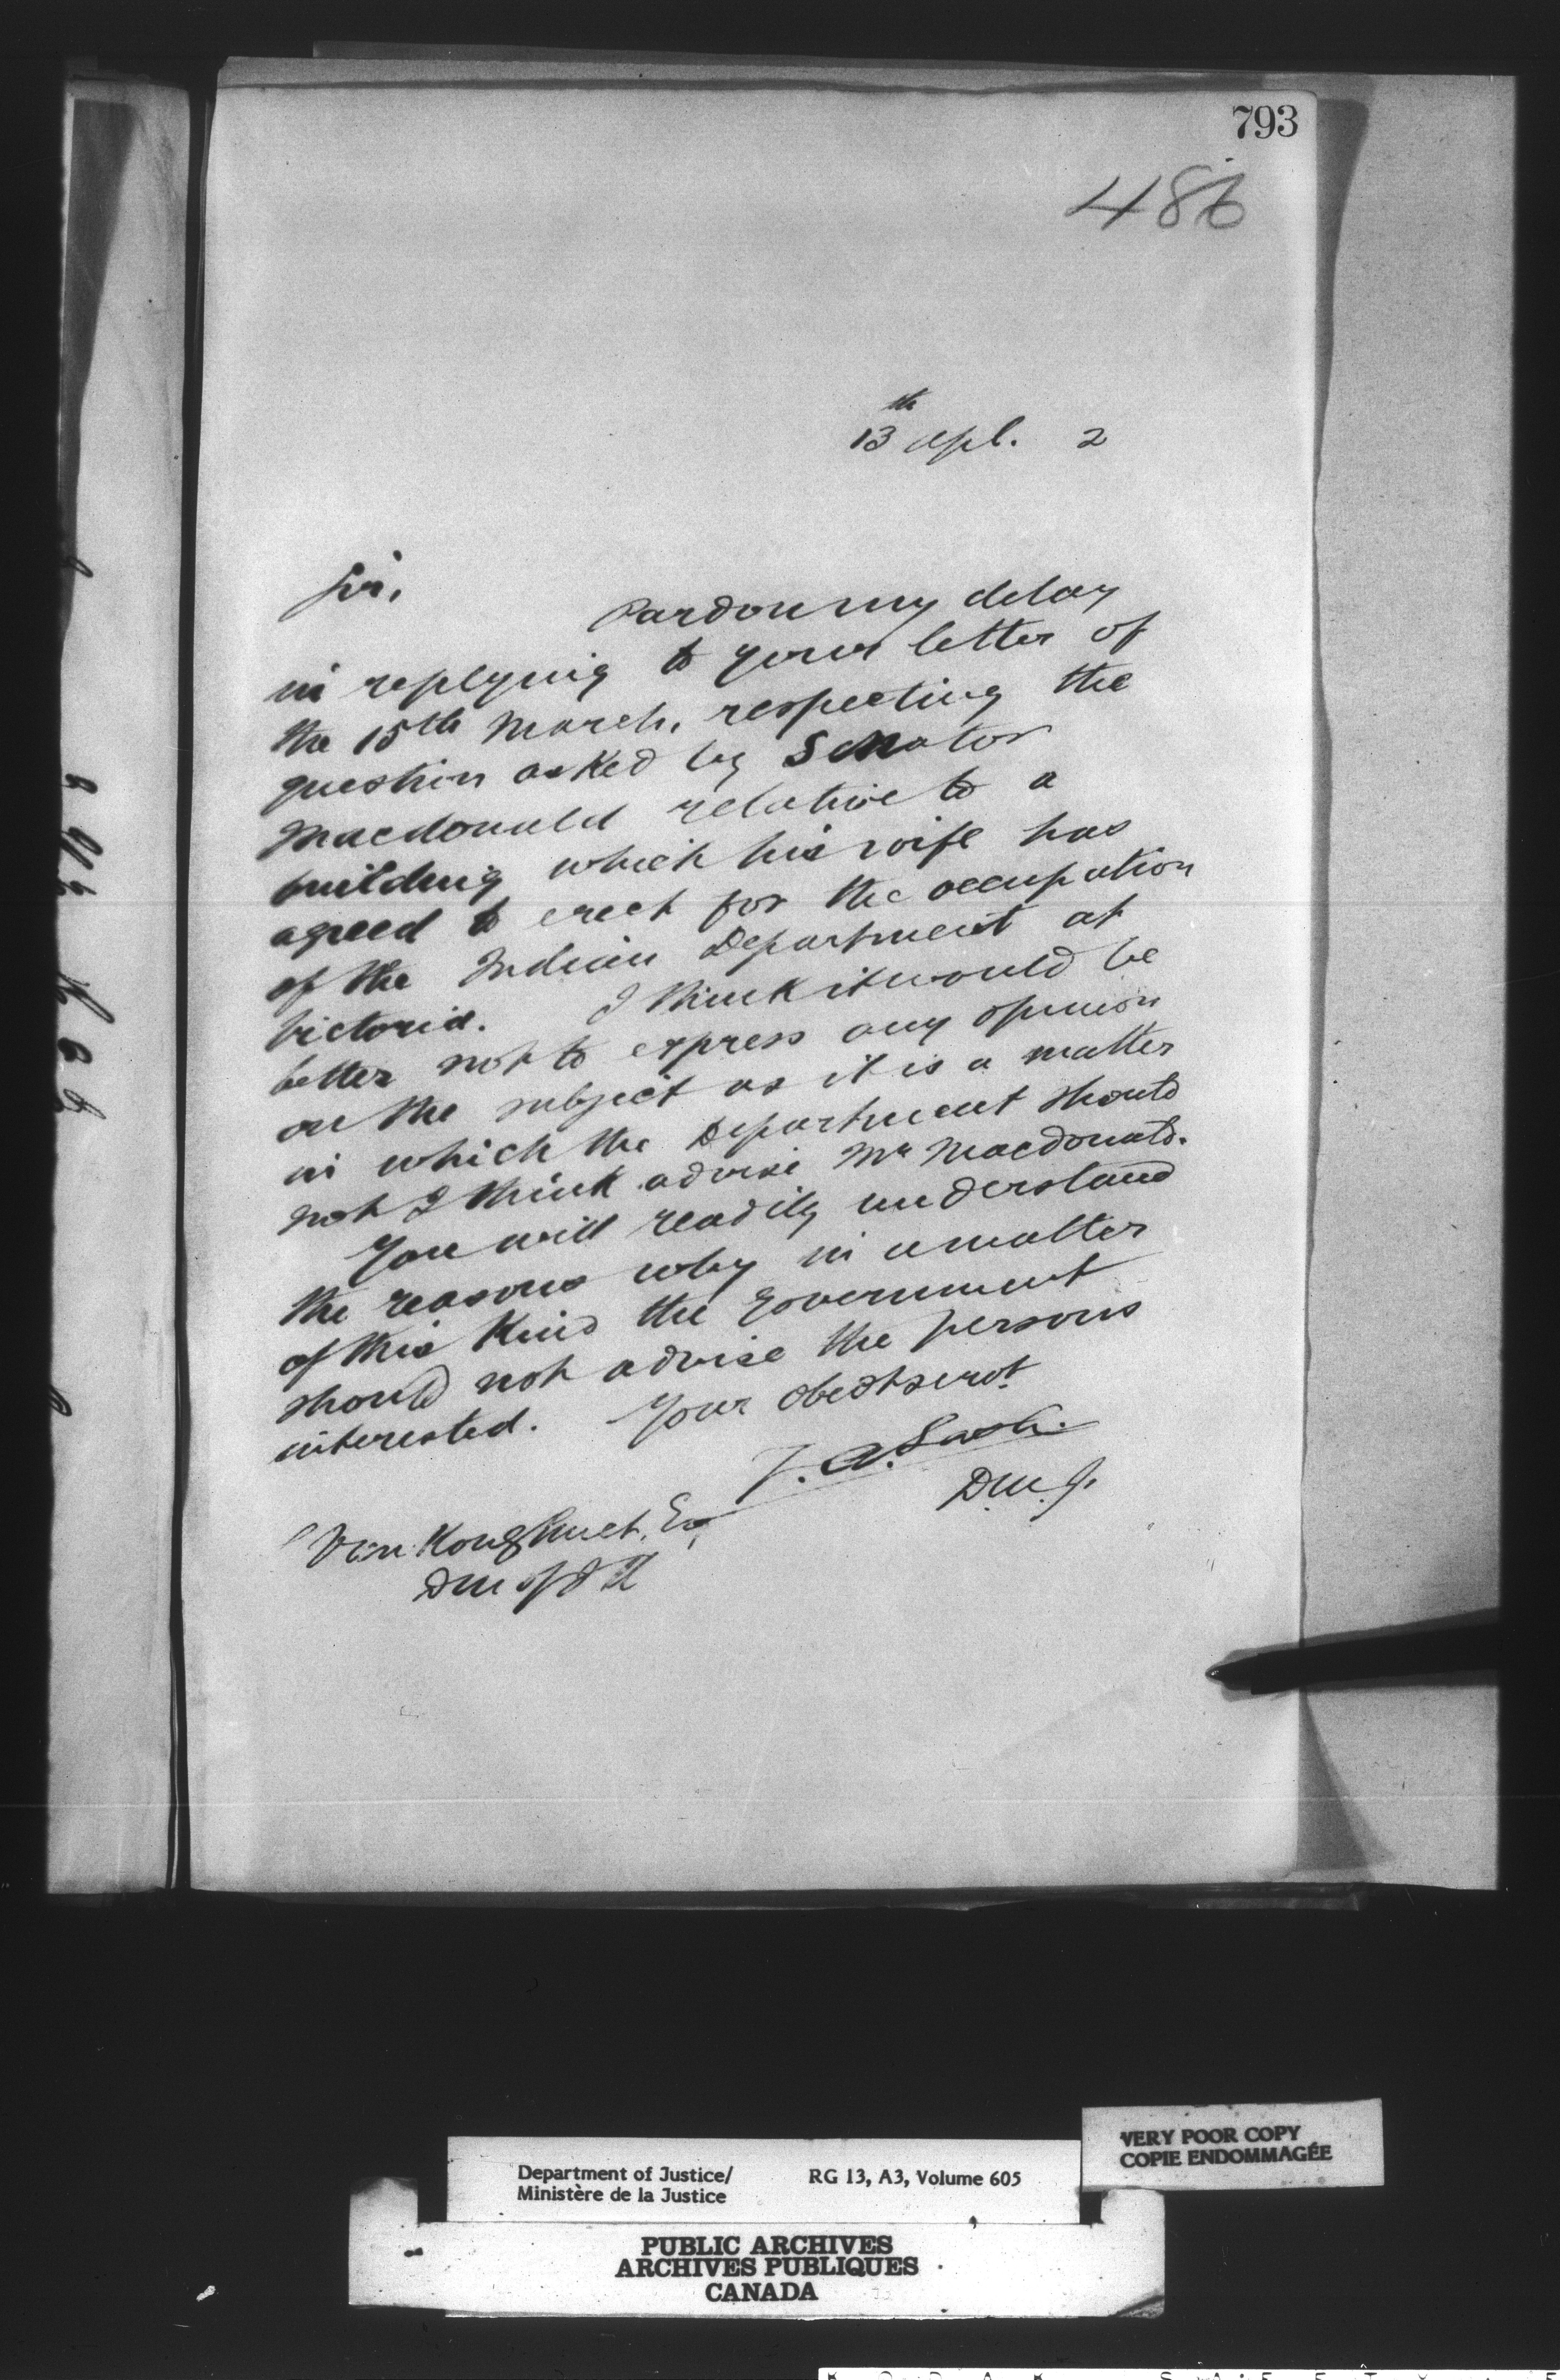 793
486
13th Apl. 2
Sir,
Pardon my delay
in replying to your letter of
the 15th March, respecting the
question asked by Senator
Macdonald relative to a
building which his wife has
agreed to erect for the occupation
of the Indian Department at
Victoria. I think it would be
better not to express any opinion
on the subject as it is a matter
in which the Department should
not I think advise Mr Macdonald.
You will readily understand
the reasons why in a matter
of this kind the Government
should not advise the persons
interested. Your obedt servt
Z. A. Lash.
D.M.J.
VanKoughnet, Esq
DM of I A
Department of Justice/ RG 13, A3, Volume 605
Ministère de la Justice
VERY POOR COPY
COPIE ENDOMMAGÉE
PUBLIC ARCHIVES
ARCHIVES PUBLIQUES
CANADA